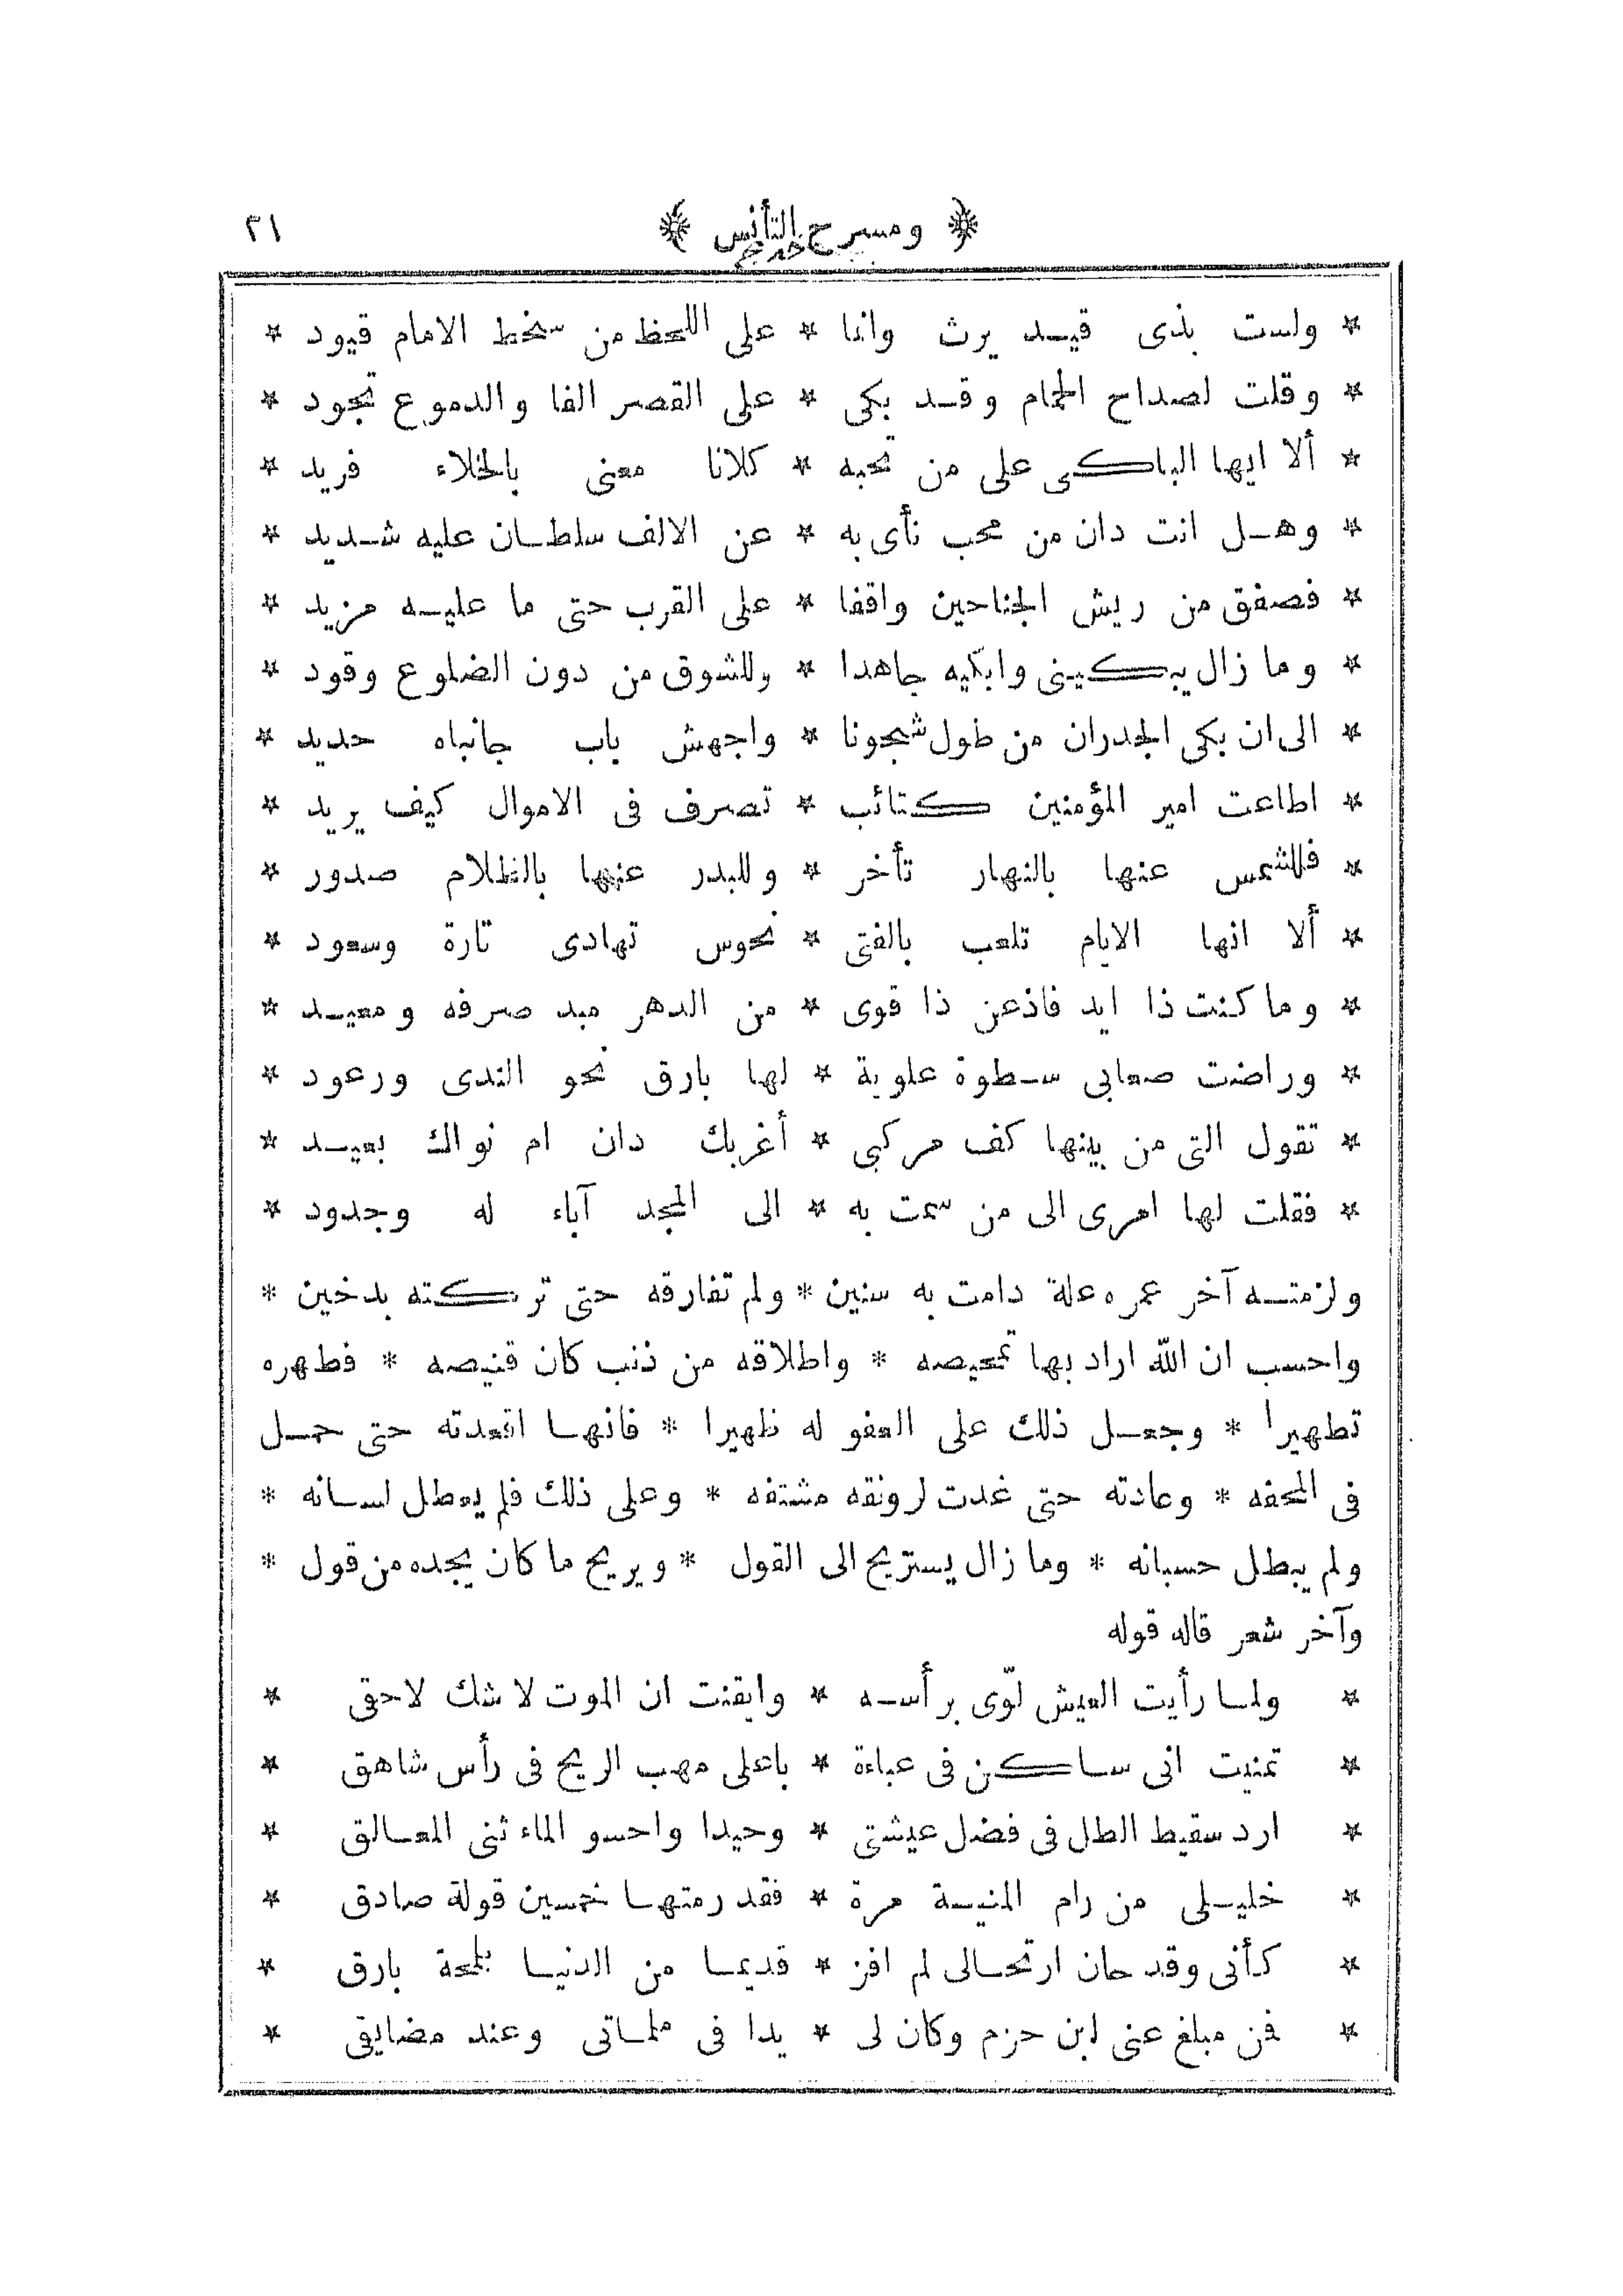 ﴿ ومسرح التأنس ﴾ ٢١
* ولست بذى قيد يرث وانما * على اللحظ من سخط الامام قيود *
* وقلت لصداح الحمام وقد بكى * على القصر الفا والدموع تجود *
* ألا ايها الباكى على من تحبه * كلانا معنى بالخلاء فريد *
* وهل انت دان من محب نأى به * عن الالف سلطان عليه شديد *
* فصفق من ريش الجناحين واقفا * على القرب حتى ما عليه مزيد *
* وما زال يبكينى وابكيه جاهدا * وللشوق من دون الضلوع وقود *
* الى ان بكى الجدران من طول شجونا * واجهش باب جانباه حديد *
* اطاعت امير المؤمنين كتائب * تصرف فى الاموال كيف يريد *
* فللشمس عنها بالنهار تأخر * وللبدر عنها بالظلام صدور *
* ألا انها الايام تلعب بالفتى * نحوس تهادى تارة وسعود *
* وما كنت ذا ايد فاذعن ذا قوى * من الدهر مبد صرفه ومعيد *
* وراضت صعابى سطوة علوية * لها بارق نحو الندى ورعود *
* تقول التى من بينها كف مركبى * أغربك دان ام نواك بعيد *
* فقلت لها امرى الى من سمت به * الى المجد آباء له وجدود *
ولزمته آخر عمره علة دامت به سنين * ولم تفارقه حتى تركته يد خين *
واحسب ان الله اراد بها تمحيصه * واطلاقه من ذنب كان قنيصه * فطهره
تطهيرا * وجعل ذلك على العفو له ظهيرا * فانها اقعدته حتى حمل
فى المحفه * وعادته حتى غدت لرونقه مشتفه * وعلى ذلك فلم يعطل لسانه *
ولم يبطل حسبانه * وما زال يستريح الى القول * ويريح ما كان يجده من قول *
وآخر شعر قاله قوله
* ولما رأيت العيش لوّى برأسه * وايقنت ان الموت لا شك لاحقى *
* تمنيت انى ساكن فى عباءة * باعلى مهب الريح فى رأس شاهق *
* ارد سقيط الطل فى فضل عيشتى * وحيدا واحسو الماء ثنى المعالق *
* خليلى من رام المنية مرة * فقد رمتها خمسين قولة صادق *
* كأنى وقد حان ارتحالى لم افز * قديما من الدنيا بلمحة بارق *
* فمن مبلغ عنى ابن حزم وكان لى * يدا فى ملماتى وعند مضايقى *